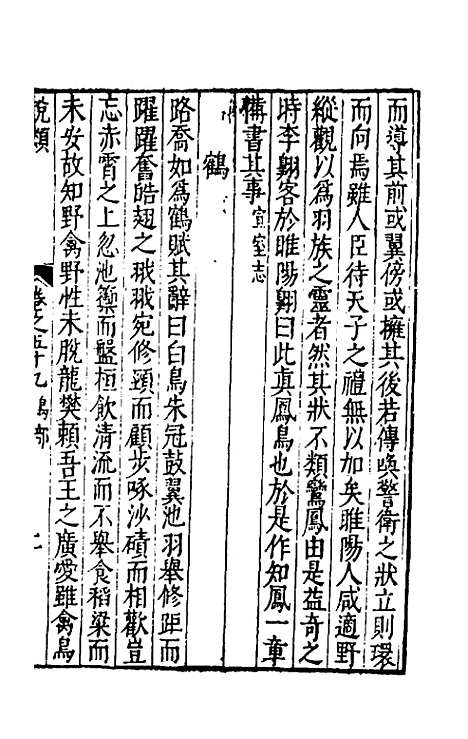 而導其前或翼傍或擁其後若傳喚警衛之狀立則環
而向焉雖人臣待天子之禮無以加矣睢陽人咸適野
縱觀以為羽族之靈者然其狀不類鸞鳳由是益奇之
時李翺客於睢陽翺曰此真鳳鳥也於是作知鳳一章
備書其事宣室志
鶴
路喬如為鶴賦其辭曰白鳥朱冠鼓翼池羽舉修距而
躍躍奮皓翅之䎒䎒宛修頸而顧步啄沙磧而相歡豈
忘赤霄之上忽池籞而盤桓飲清流而不舉食稻粱而
未安故知野禽野性未脫龍樊賴吾王之廣愛雖禽鳥
說類
卷之五十九 鳥部